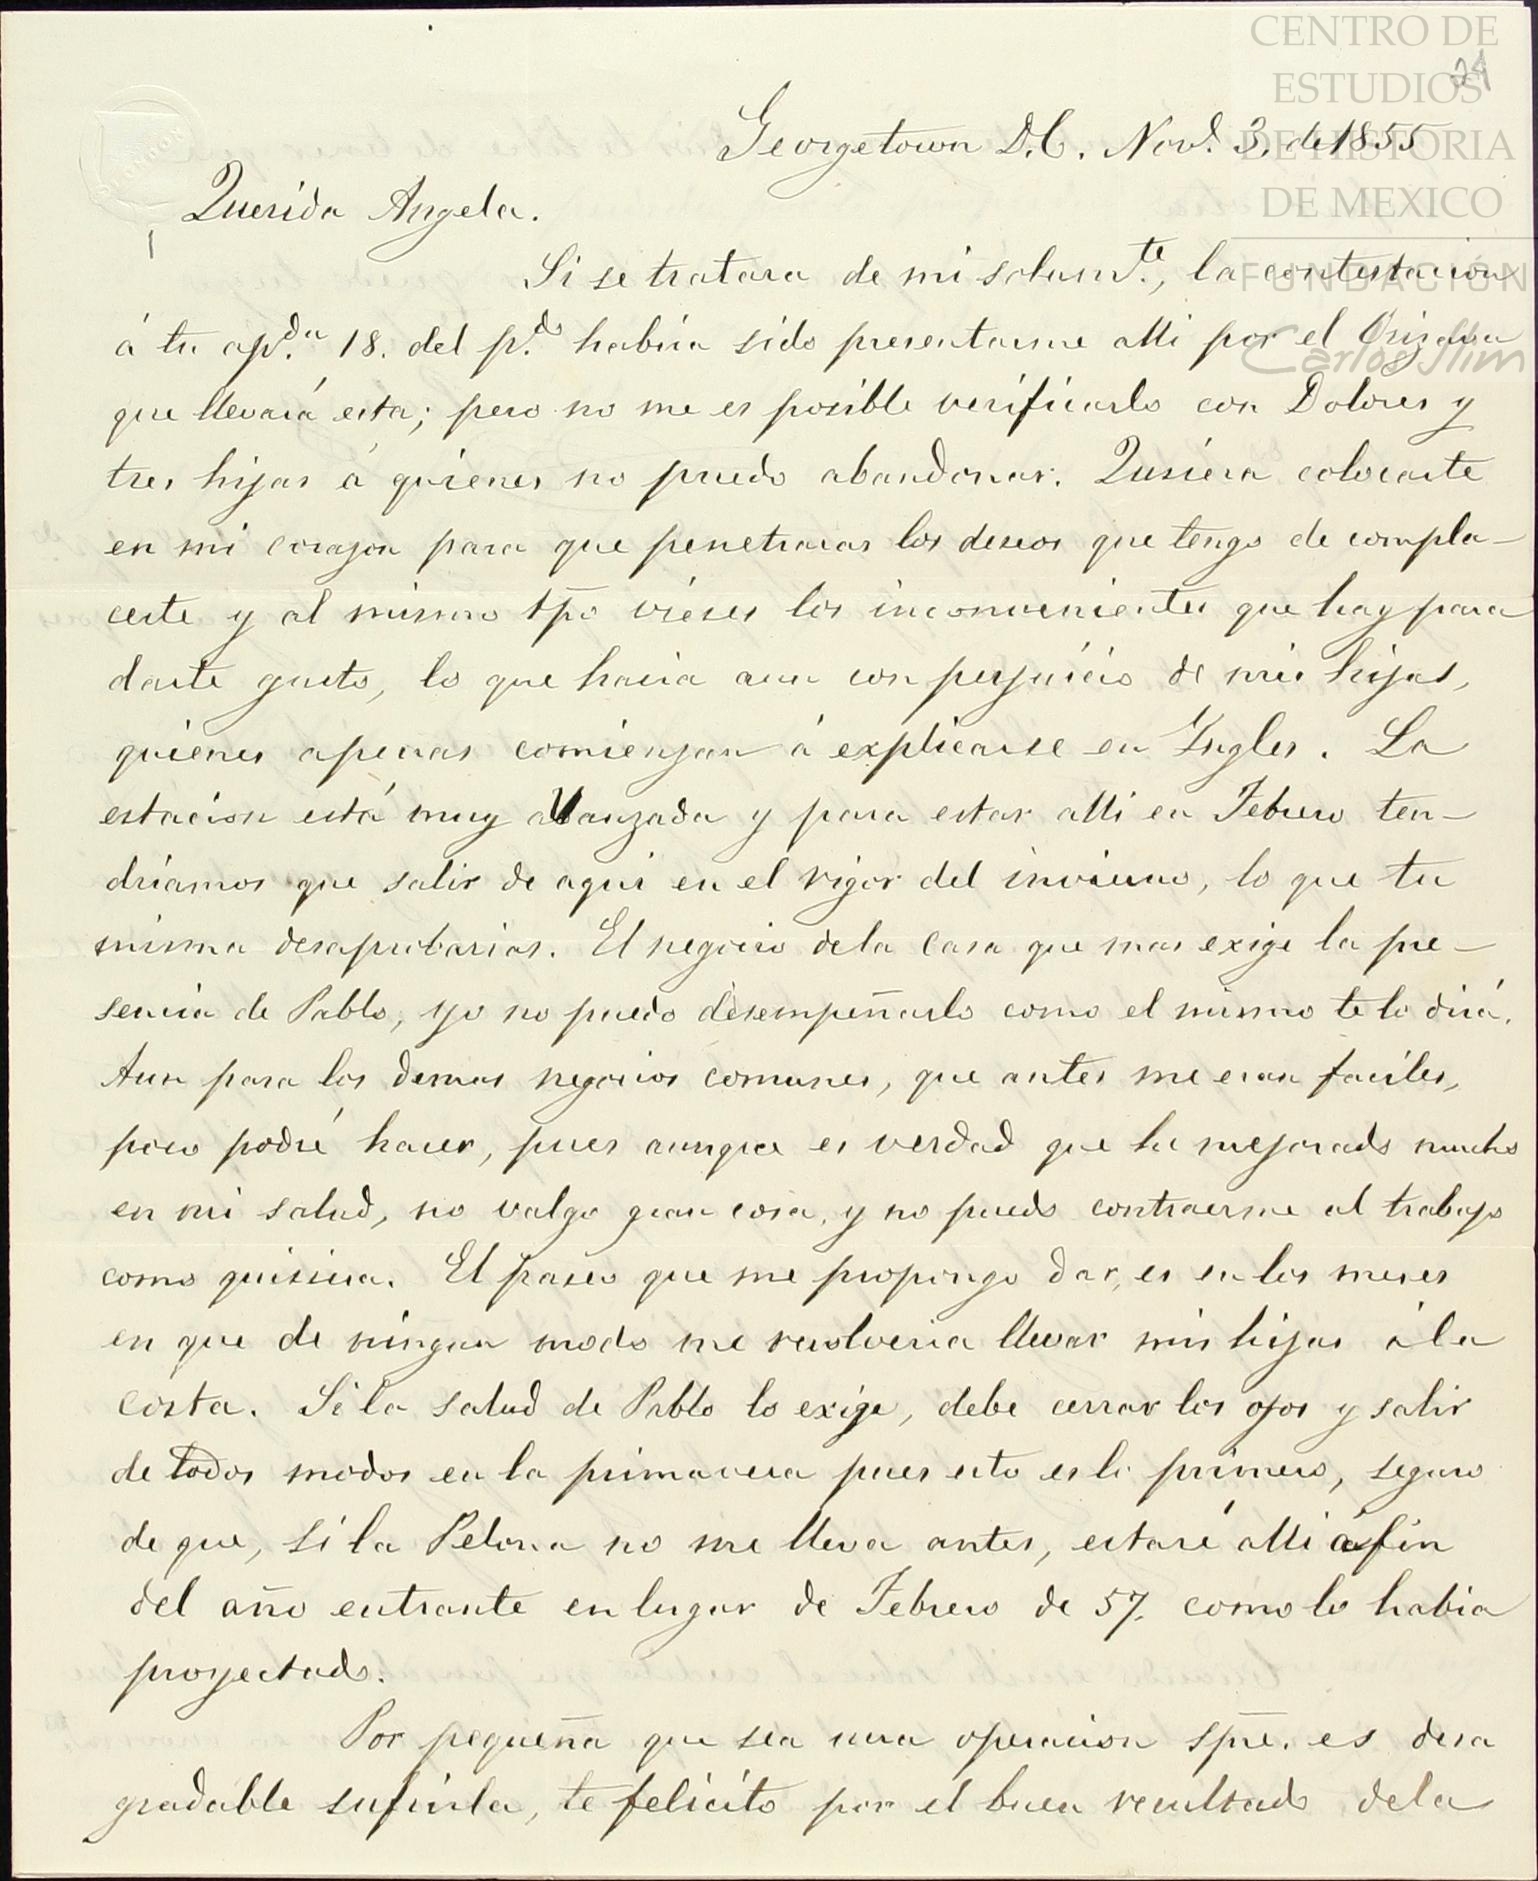 CENTRO DE
ESTUDIOS
DE HISTORIA
DE MEXICO
FUNDACIÓN
Carlos Slim
24
Georgetown D.C. Nov.e 3. de 1855
Querida Angela.
Si se tratara de mi solam.te, la contestacion
á tu ap.da 18. del p.do habria sido presentarme alli por el Orizava
que llevará esta; pero no me es posible verificarlo con Dolores y
tres hijas á quienes no puedo abandonar. Quisiera colocarte
en mi corazon para que penetraras los deseos que tengo de compla-
certe y al mismo tpo vieses los inconvenientes que hay para
darte gusto, lo que haria aun con perjuicio de mis hijas,
quienes apenas comienzan á explicarse en Ingles. La
estacion está muy avanzada y para estar alli en Febrero ten-
driamos que salir de aqui en el rigor del invierno, lo que tu
misma desaprobarias. El negocio dela casa que mas exige la pre-
sencia de Pablo, yo no puedo desempeñarlo como el mismo te lo dirá.
Aun para los demas negocios comunes, que antes me eran faciles,
poco podré hacer, pues aunque es verdad que he mejorado mucho
en mi salud, no valgo gran cosa, y no puedo contraerme al trabajo
como quisiera. El paseo que me propongo dar, es en los meses
en que de ningun modo me resolveria llevar mis hijas á la
costa. Si la salud de Pablo lo exige, debe cerrar los ojos y salir
de todos modos en la primavera pues esto es lo primero, seguro
de que, si la Pelona no me lleva antes, estaré alli á fin
del año entrante en lugar de Febrero de 57. como lo habia
proyectado.
Por pequeña que sea una operacion spre. es desa
gradable sufrirla, te felicito por el buen resultado dela